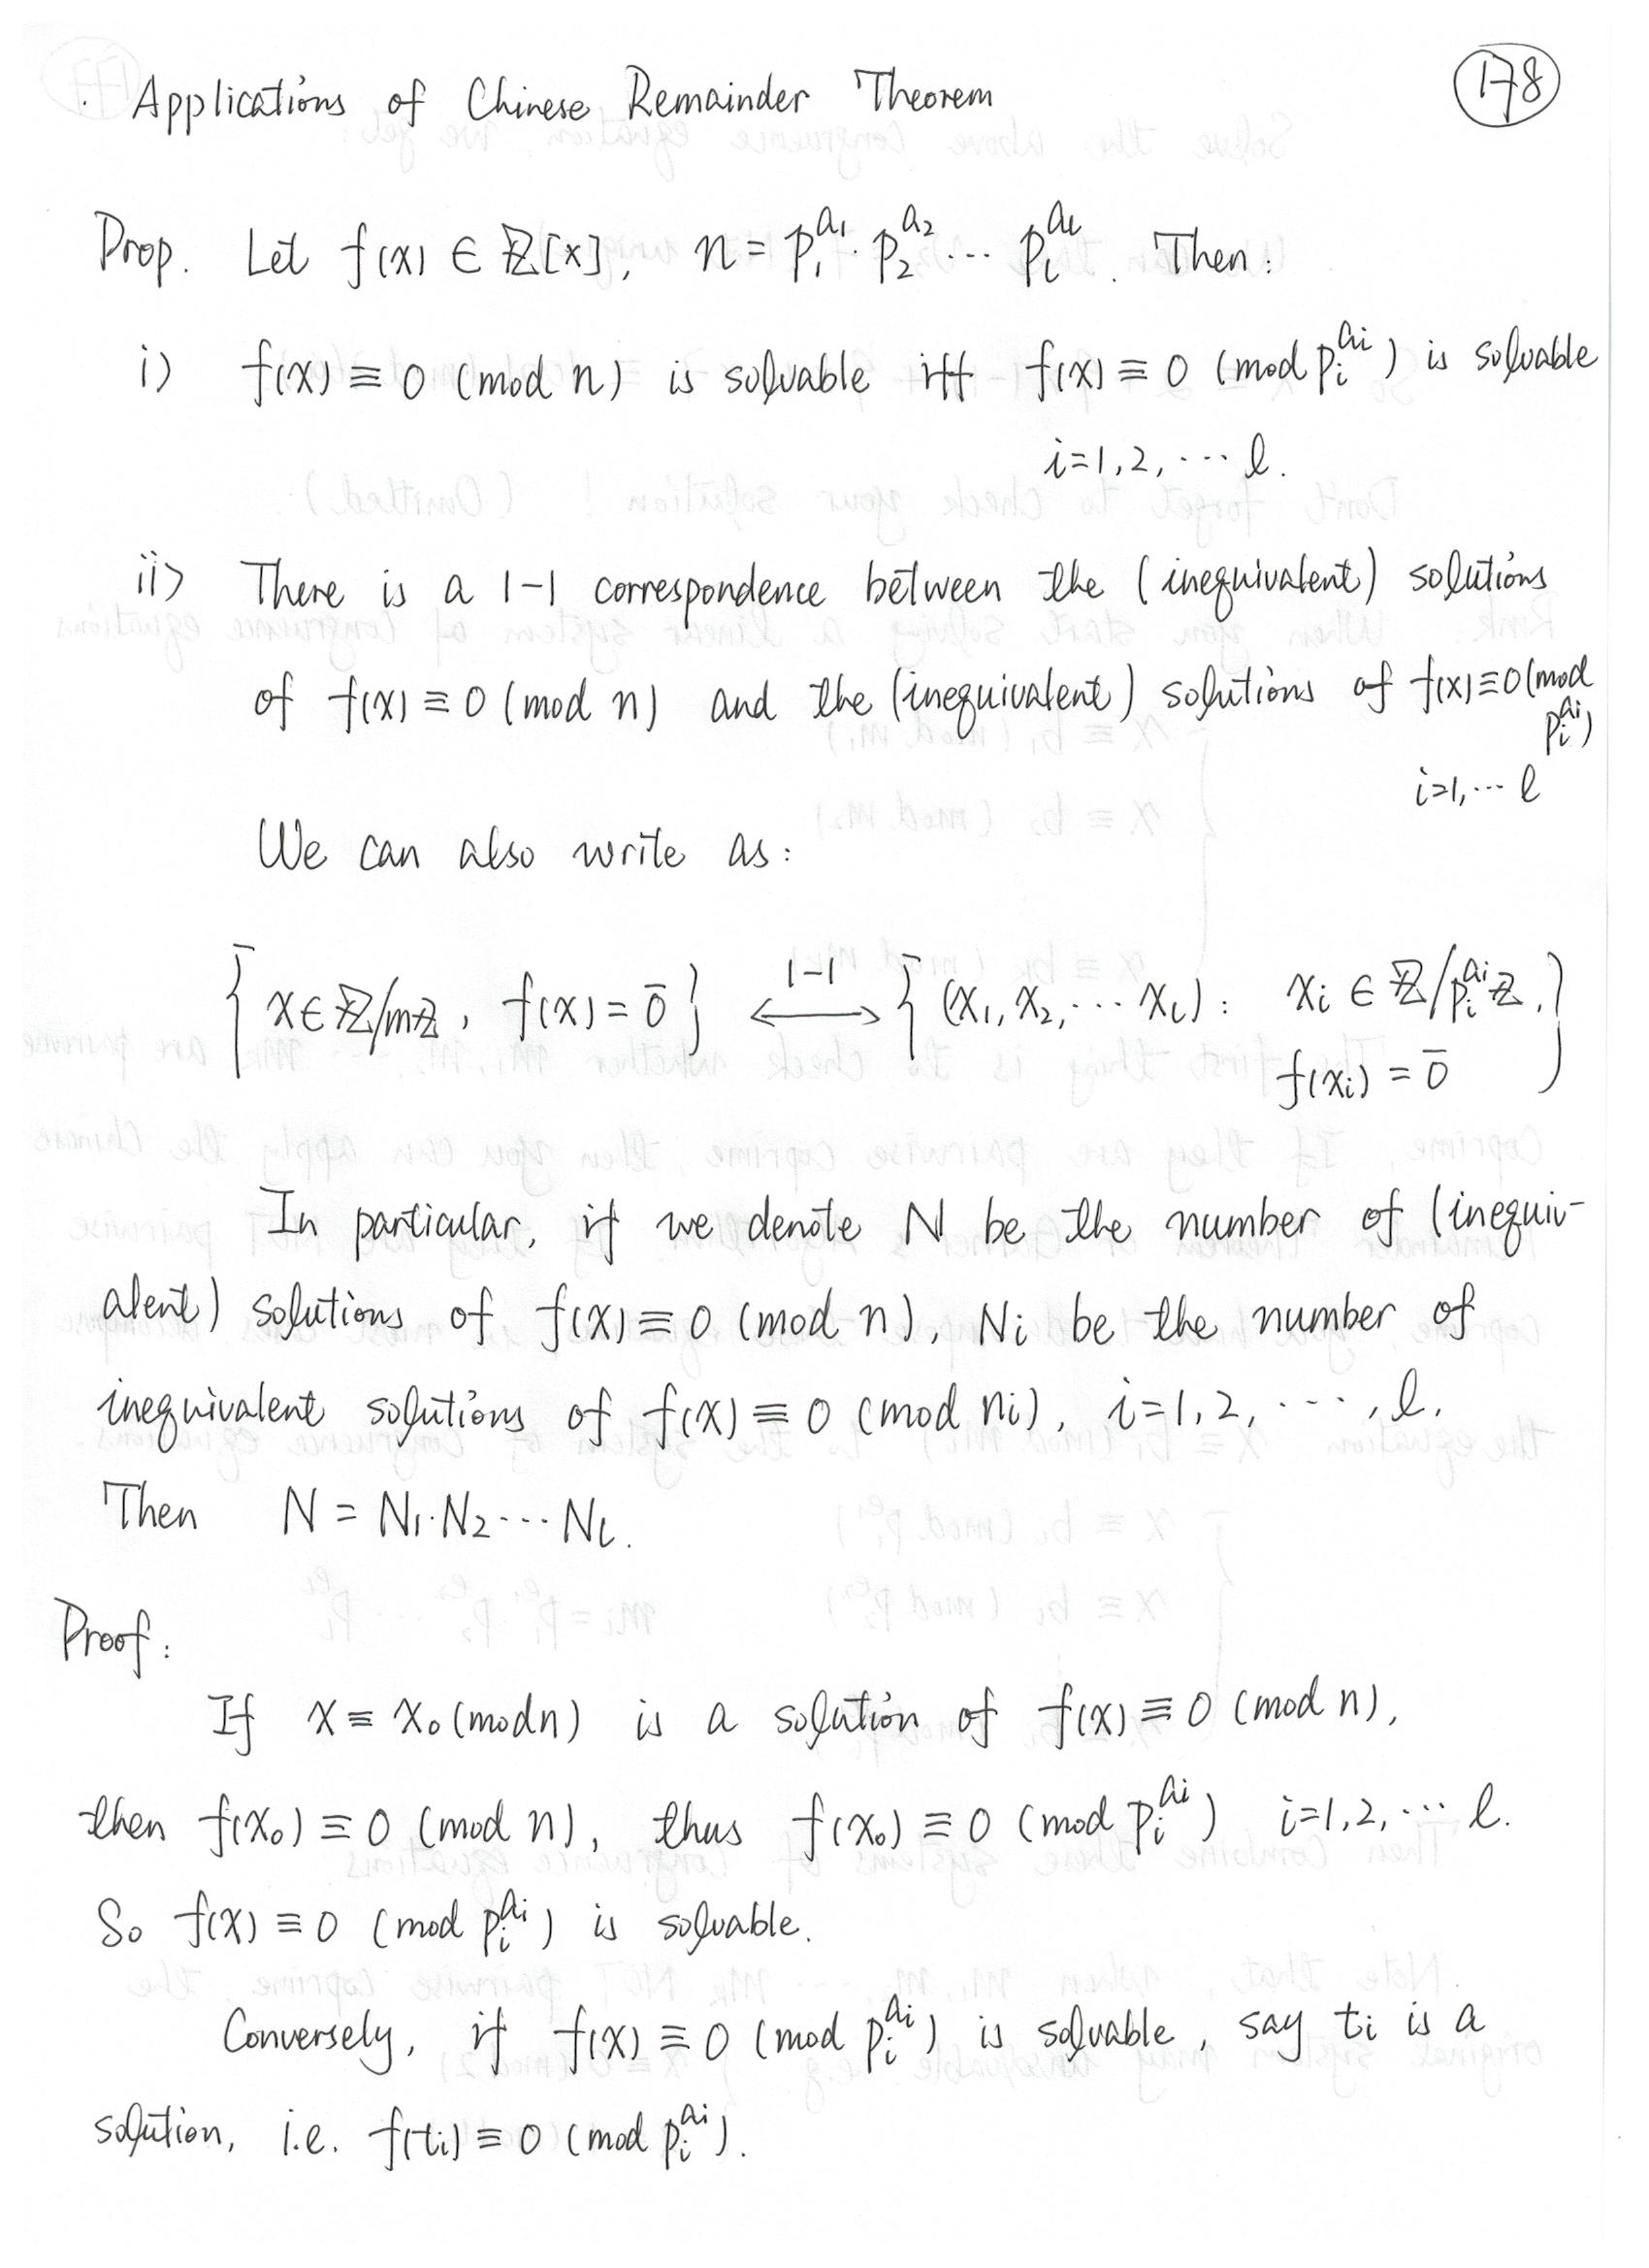 Applications of Chinese Remainder Theorem
178
Prop. Let f(x) ∈ ℤ[x], n = p₁^{a₁}·p₂^{a₂}···p_l^{a_l}. Then:
i) f(x) ≡ 0 (mod n) is solvable iff f(x) ≡ 0 (mod p_i^{a_i}) is solvable
i=1,2,···l.
ii) There is a 1-1 correspondence between the (inequivalent) solutions
of f(x) ≡ 0 (mod n) and the (inequivalent) solutions of f(x)≡0(mod
p_i^{a_i})
i=1,···l
We can also write as:
{x∈ℤ/mℤ, f(x)=0̄} ⟷^{1-1} {(x₁,x₂,···x_l): x_i ∈ ℤ/p_i^{a_i}ℤ,
f(x_i) = 0̄}
In particular, if we denote N be the number of (inequiv-
alent) solutions of f(x)≡0 (mod n), N_i be the number of
inequivalent solutions of f(x) ≡ 0 (mod n_i), i=1,2,···,l.
Then N = N₁·N₂···N_l.
Proof:
If x ≡ x₀(mod n) is a solution of f(x) ≡ 0 (mod n),
then f(x₀) ≡ 0 (mod n), thus f(x₀) ≡ 0 (mod p_i^{a_i}) i=1,2,···l.
So f(x) ≡ 0 (mod p_i^{a_i}) is solvable.
Conversely, if f(x) ≡ 0 (mod p_i^{a_i}) is solvable, say t_i is a
solution, i.e. f(t_i) ≡ 0 (mod p_i^{a_i}).